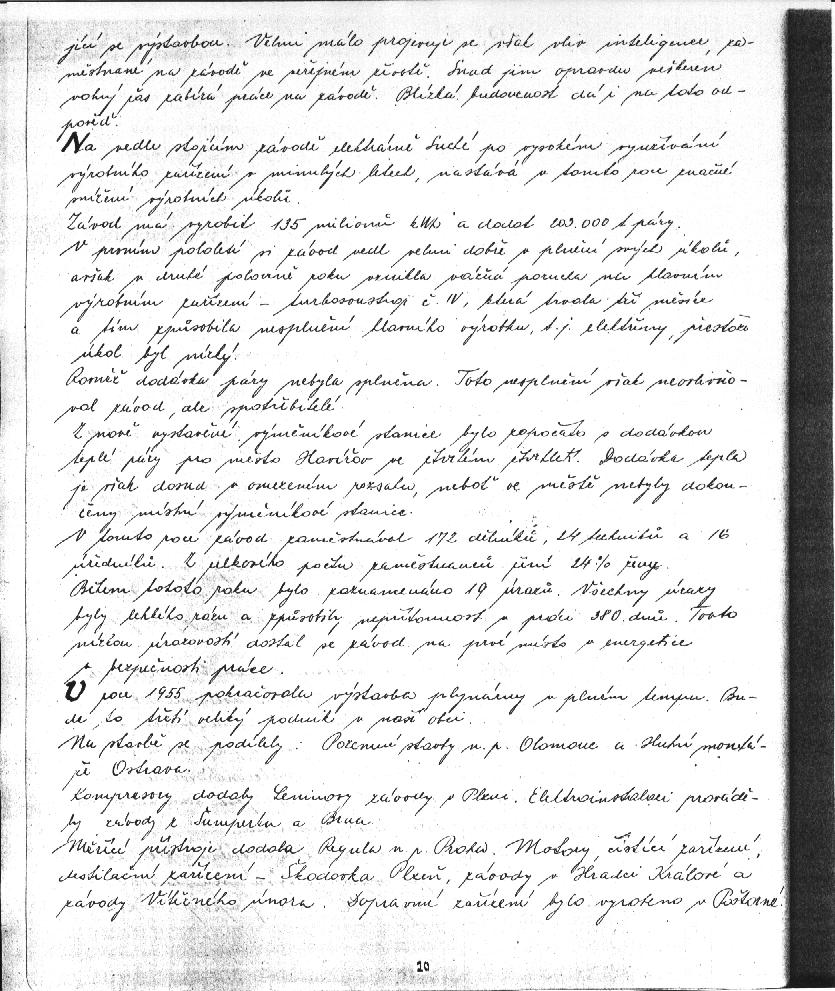 jící se výstavbou. Velmi málo projevuje se však vliv inteligence, za-
městnané na závodě ve veřejném životě. Snad jim opravdu veškeren
volný čas zabírá práce na závodě. Blízká budoucnost dá i na toto od-
pověď.
Na vedle stojícím závodě elektrárně Suché po vysokém využívání
výrobního zařízení v minulých letech, nastává v tomto roce značné
snížení výrobních úkolů.
Závod má vyrobit 135 milionů kWh a dodat 203.000 t páry.
V prvním pololetí si závod vedl velmi dobře v plnění svých úkolů,
avšak v druhé polovině roku vznikla vážná porucha na hlavním
výrobním zařízení – turbosoustrojí č. IV, která trvala tři měsíce
a tím způsobila nesplnění hlavního výrobku, t.j. elektřiny, přestože
úkol byl nízký.
Rovněž dodávka páry nebyla splněna. Toto nesplnění však neovlivňo-
val závod, ale spotřebitelé.
Z nově vystavěné výměníkové stanice bylo započato s dodávkou
teplé páry pro město Havířov ve čtvrtém čtvrtletí. Dodávka tepla
je však dosud v omezeném rozsahu, neboť ve městě nebyly dokon-
čeny místní výměníkové stanice.
V tomto roce závod zaměstnával 172 dělníků, 24 techniků a 16
úředníků. Z celkového počtu zaměstnanců činí 24% ženy.
Během tohoto roku bylo zaznamenáno 19 úrazů. Všechny úrazy
byly lehkého rázu a způsobily nepřítomnost v práci 380 dnů. Touto
nízkou úrazovostí dostal se závod na prvé místo v energetice
v bezpečnosti práce.
V roce 1955 pokračovala výstavba plynárny v plném tempu. Bu-
de to třetí veliký podnik v naší obci.
Na stavbě se podílely: Pozemní stavby n.p. Olomouc a Hutní montá-
že Ostrava.
Kompresory dodaly Leninovy závody v Plzni. Elektroinstalaci prováděl-
ly závody z Šumperku a Brna.
Měřící přístroje dodala Regula n.p. Praha. Motory, čistící zařízení,
destilační zařízení – Škodovka Plzeň, závody v Hradci Králové a
závody Vítězného února. Dopravní zařízení bylo vyrobeno v Poštorné.
10